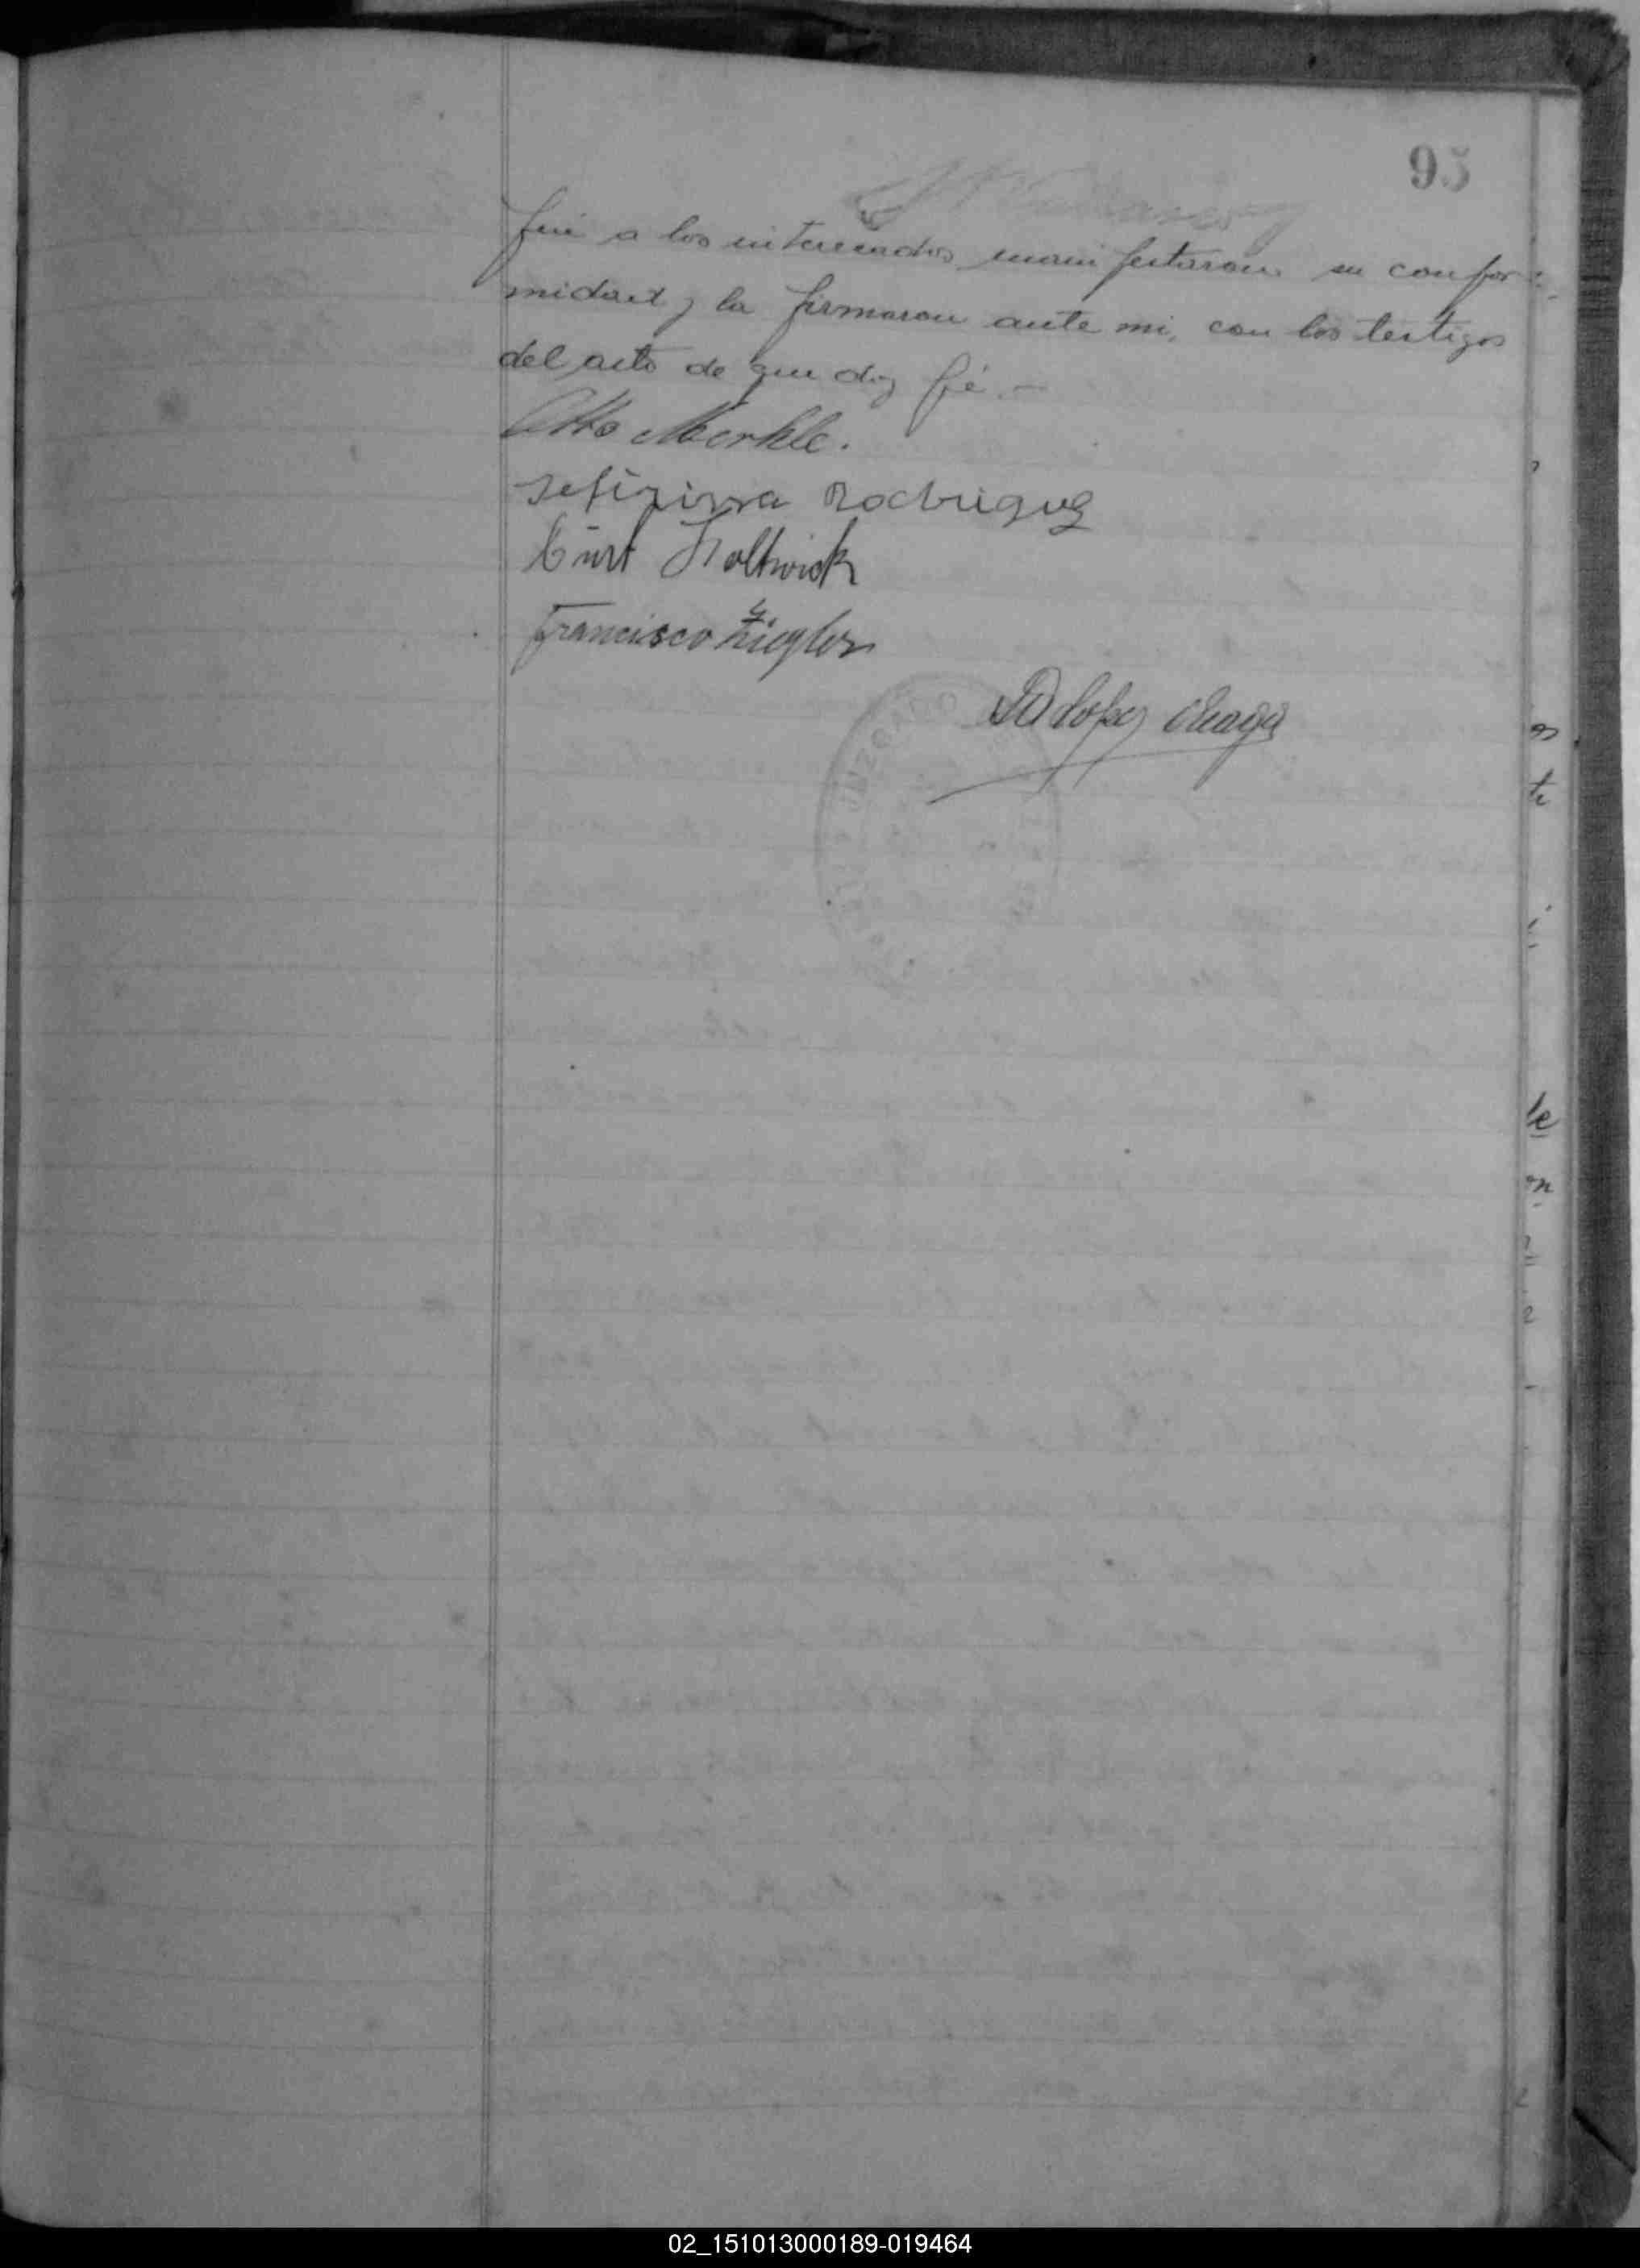 95
fui a los interesados manifestaron su confor-
midad y la firmaron ante mi, con los testigos
del acto de que doy fé.—
Otto Merkle.
Sefirirra Rodriguez
Curt Holtwick
Francisco Ziegler
Lopez
JUZGADO
te
le
en
02_151013000189-019464